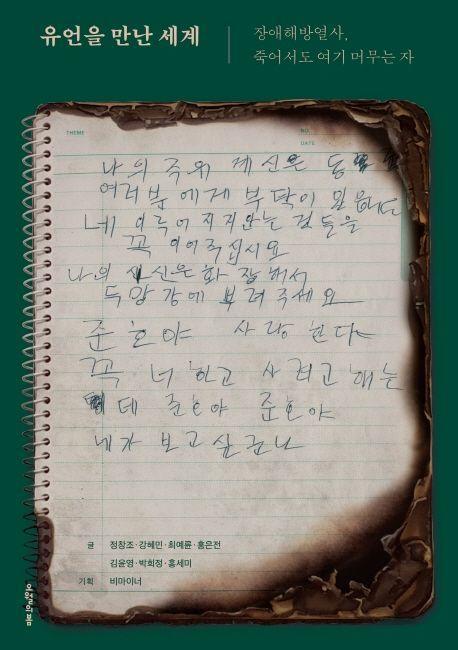 유언을 만난 세계
장애해방열사,
죽어서도 여기 머무는 자
THEME
NO.
DATE
나의 죽위 제신은
여러분에게 부닥이 있습니다
네 이루어지지 않는 것들을
꼭 이어주십시요
나의 시신은 화장해서
두만강에 뿌려주세요
준호야 사랑한다
꼭 너하고 사려고 해는
데 준호야 준호야
네가 보고싶군나
글 정창조·강혜민·최예륜·홍은전
김윤영·박희정·홍세미
기획 비마이너
오월의봄